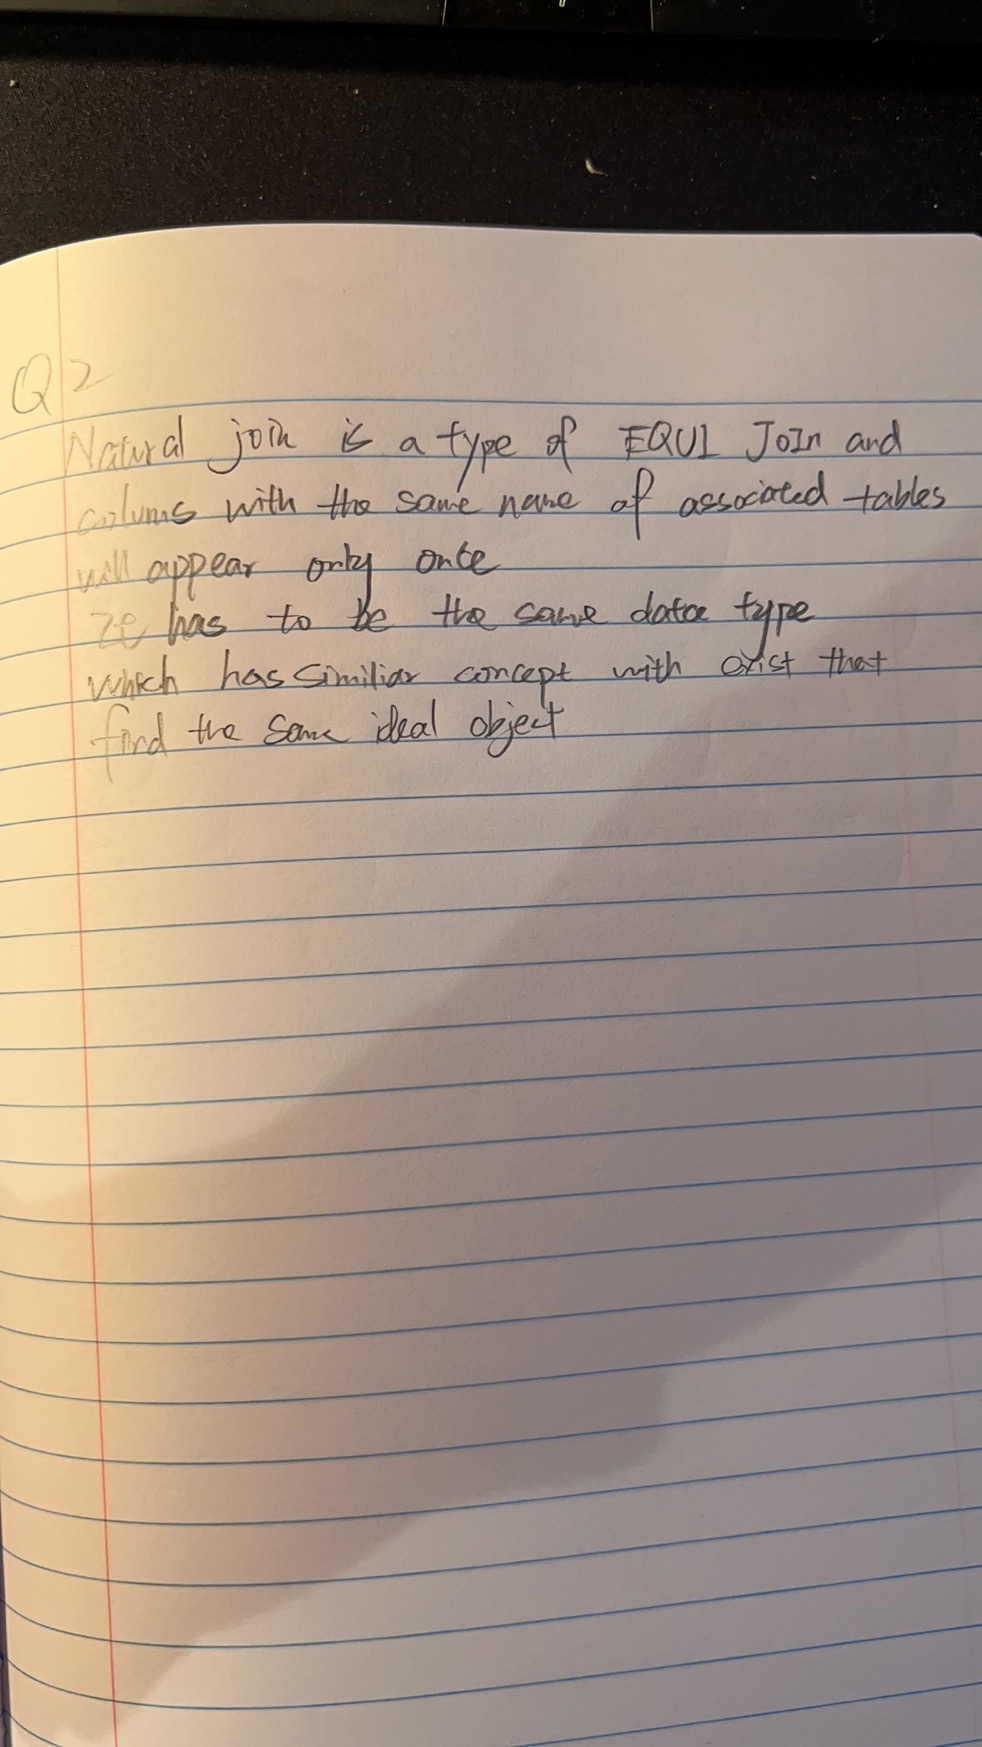 Q2
Natural join is a type of EQUI JoIn and
colums with the same name of associated tables
will appear only once
Ze has to be the same data type
which has similiar concept with exist that
find the same ideal object